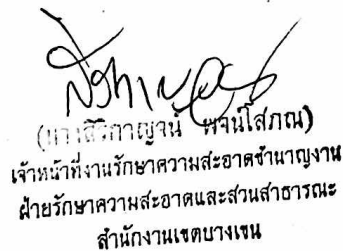 (นางสิริกาญจน์ พจน์โสภณ)
เจ้าหน้าที่งานรักษาความสะอาดชำนาญงาน
ฝ่ายรักษาความสะอาดและสวนสาธารณะ
สำนักงานเขตบางเขน